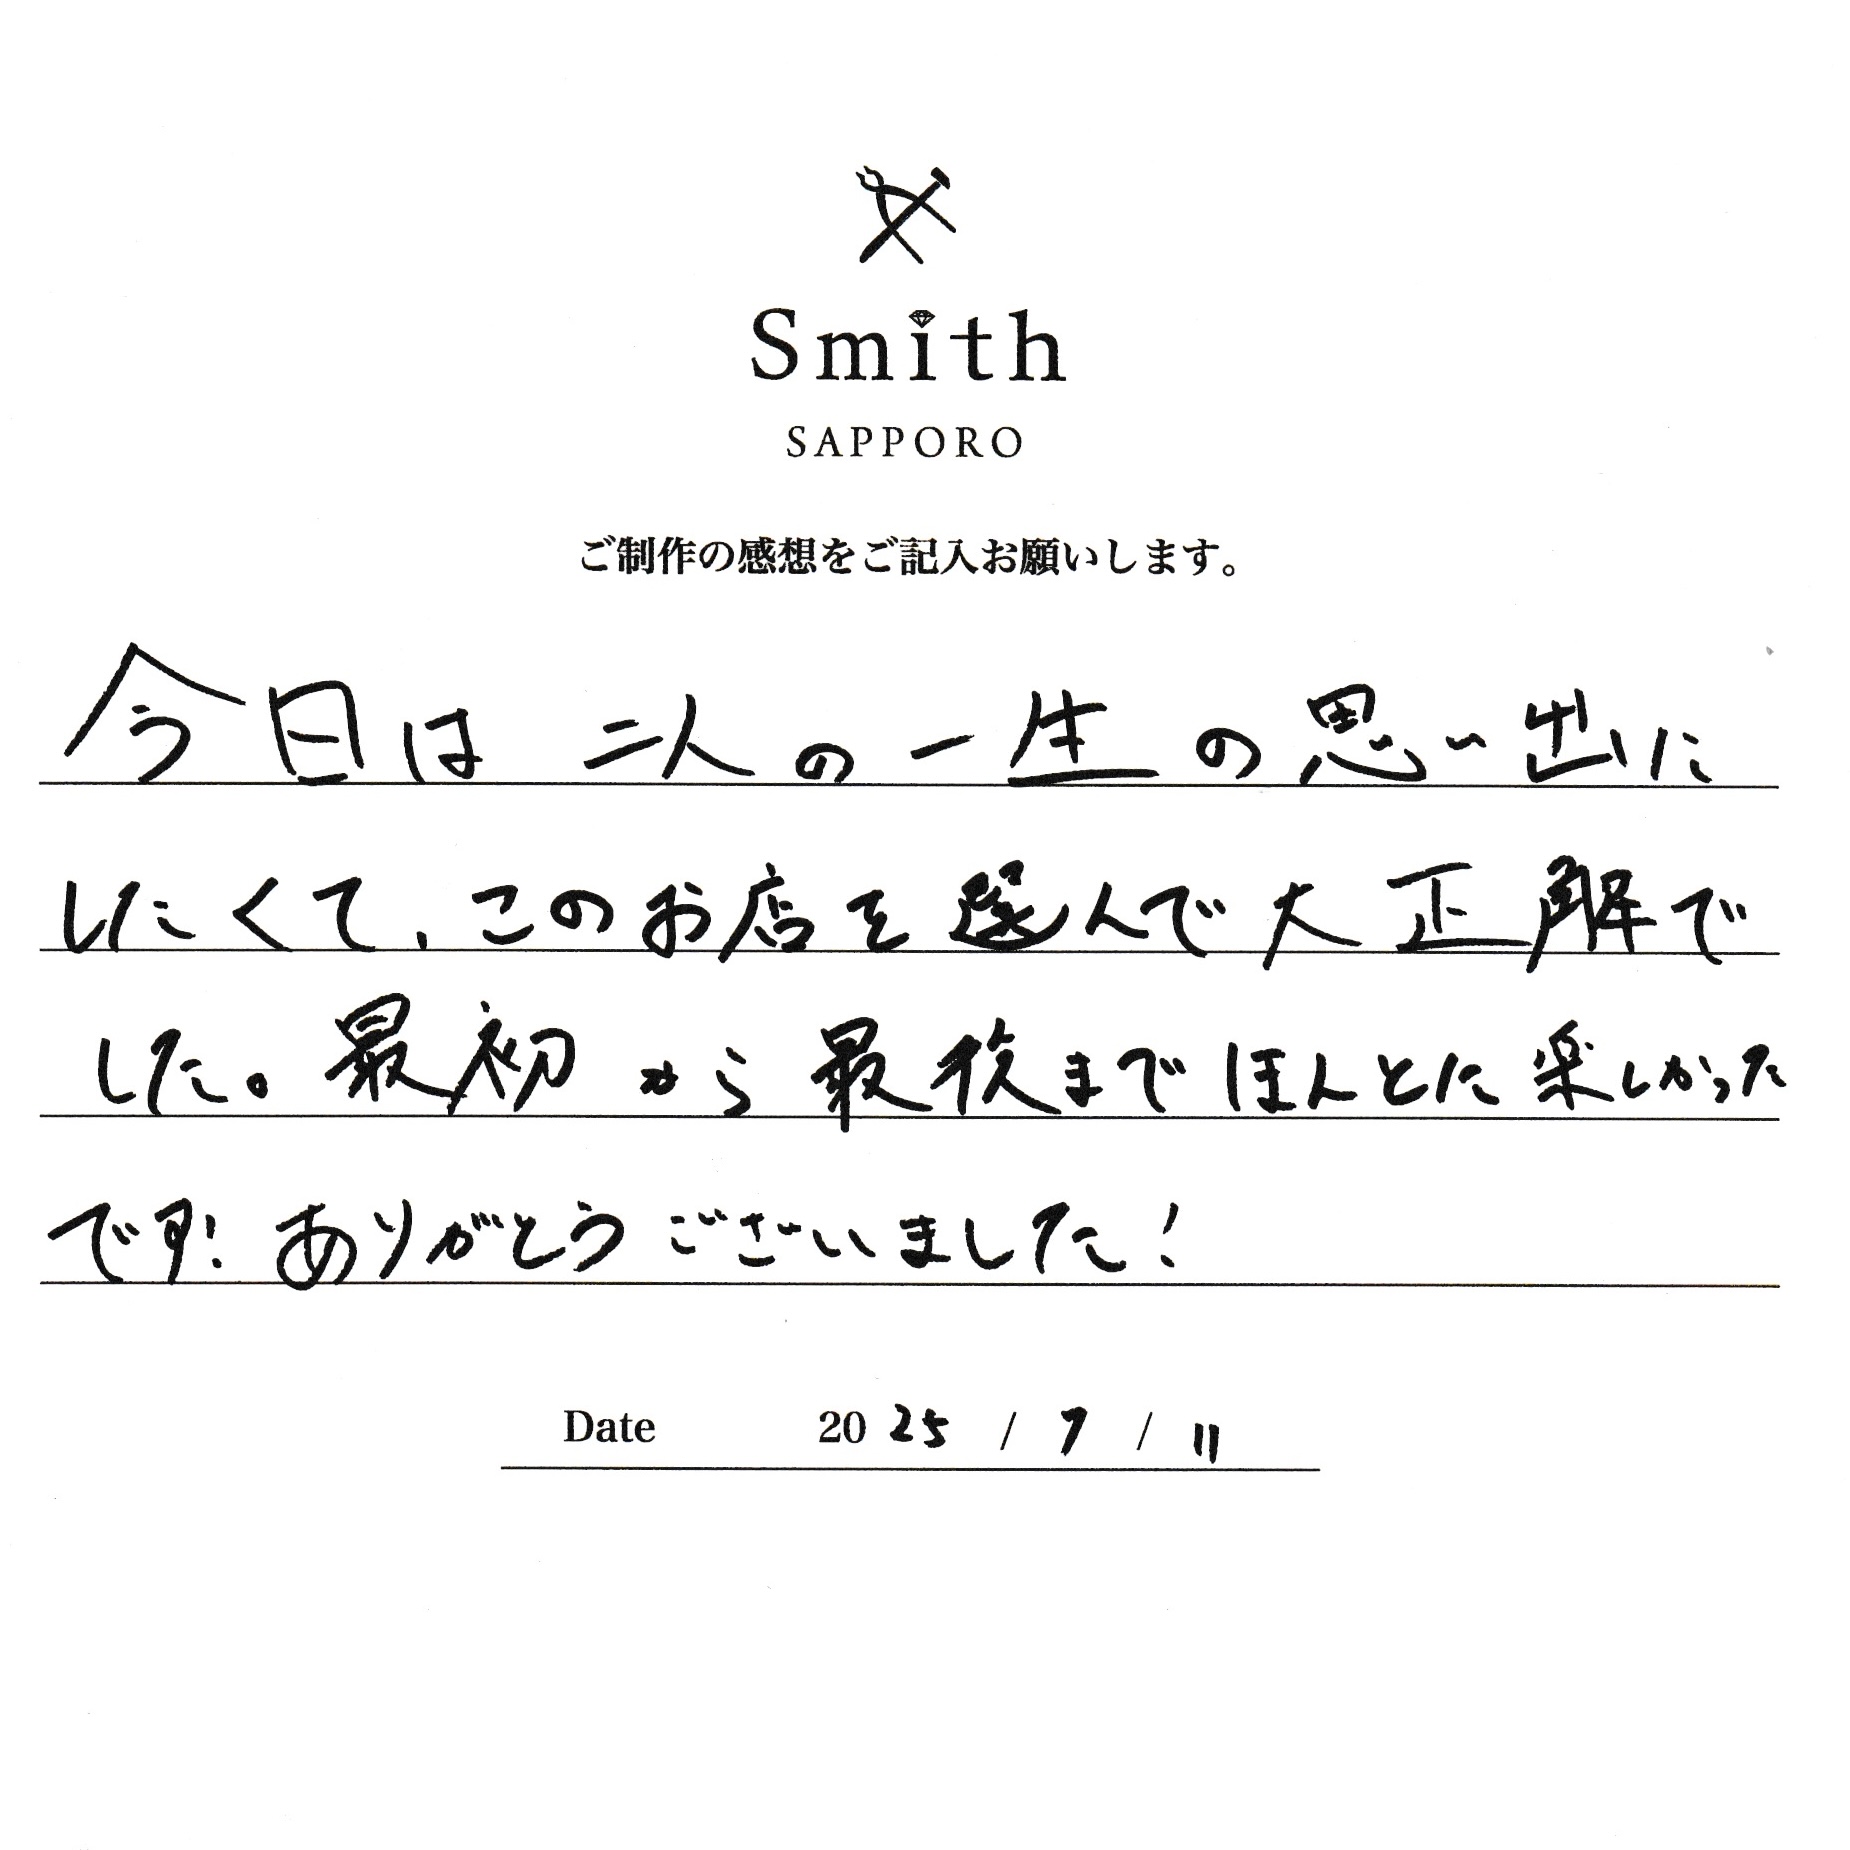 Smith
SAPPORO
ご制作の感想をご記入お願いします。
今日は二人の一生の思い出に
したくて、このお店を選んで大正解で
した。最初から最後までほんとに楽しかった
です!ありがとうございました!
Date 2025 / 7 / 11